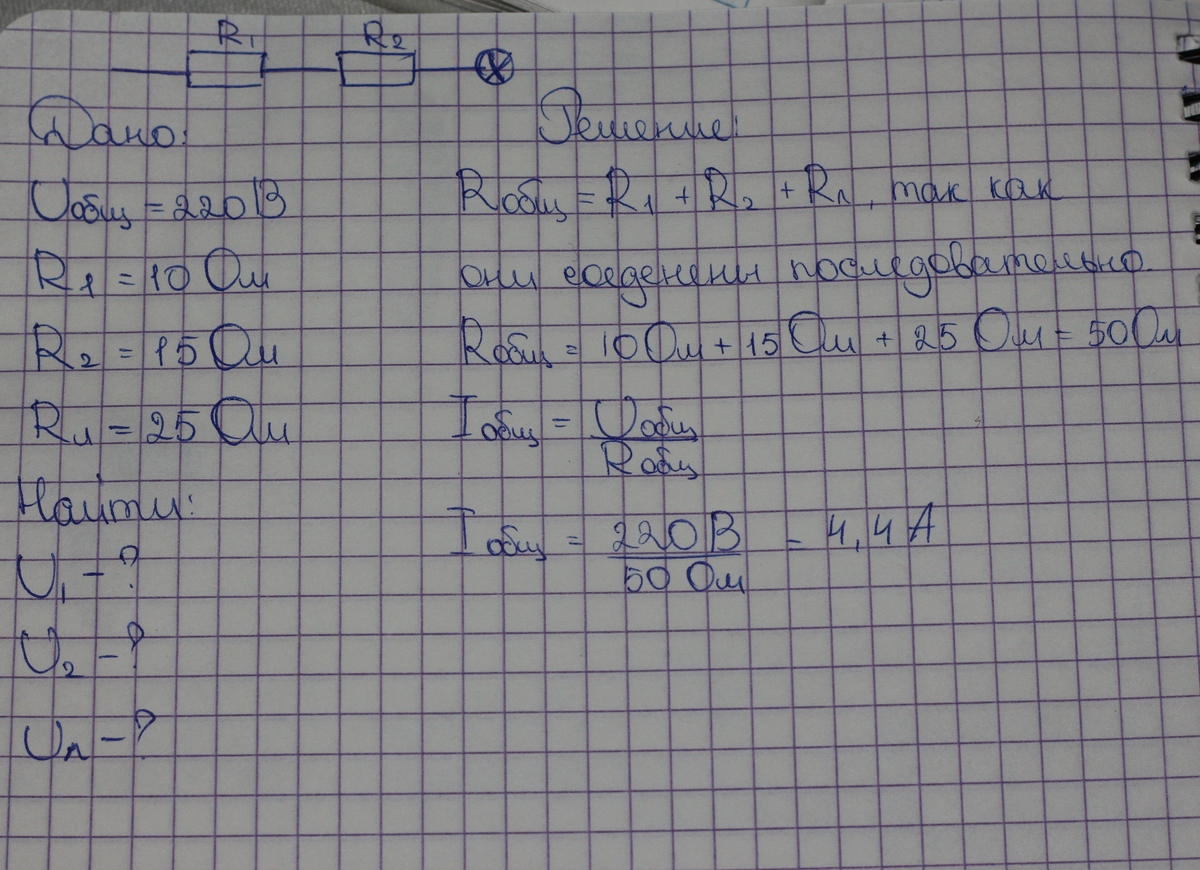 R₁ R₂
Дано:
Uобщ = 220 В
R₁ = 10 Ом
R₂ = 15 Ом
Rл = 25 Ом
Найти:
U₁ – ?
U₂ – ?
Uл – ?
Решение:
Rобщ = R₁ + R₂ + Rл, так как
они соеденены последовательно.
Rобщ = 10 Ом + 15 Ом + 25 Ом = 50 Ом
Iобщ = Uобщ / Rобщ
Iобщ = 220 В / 50 Ом = 4,4 А